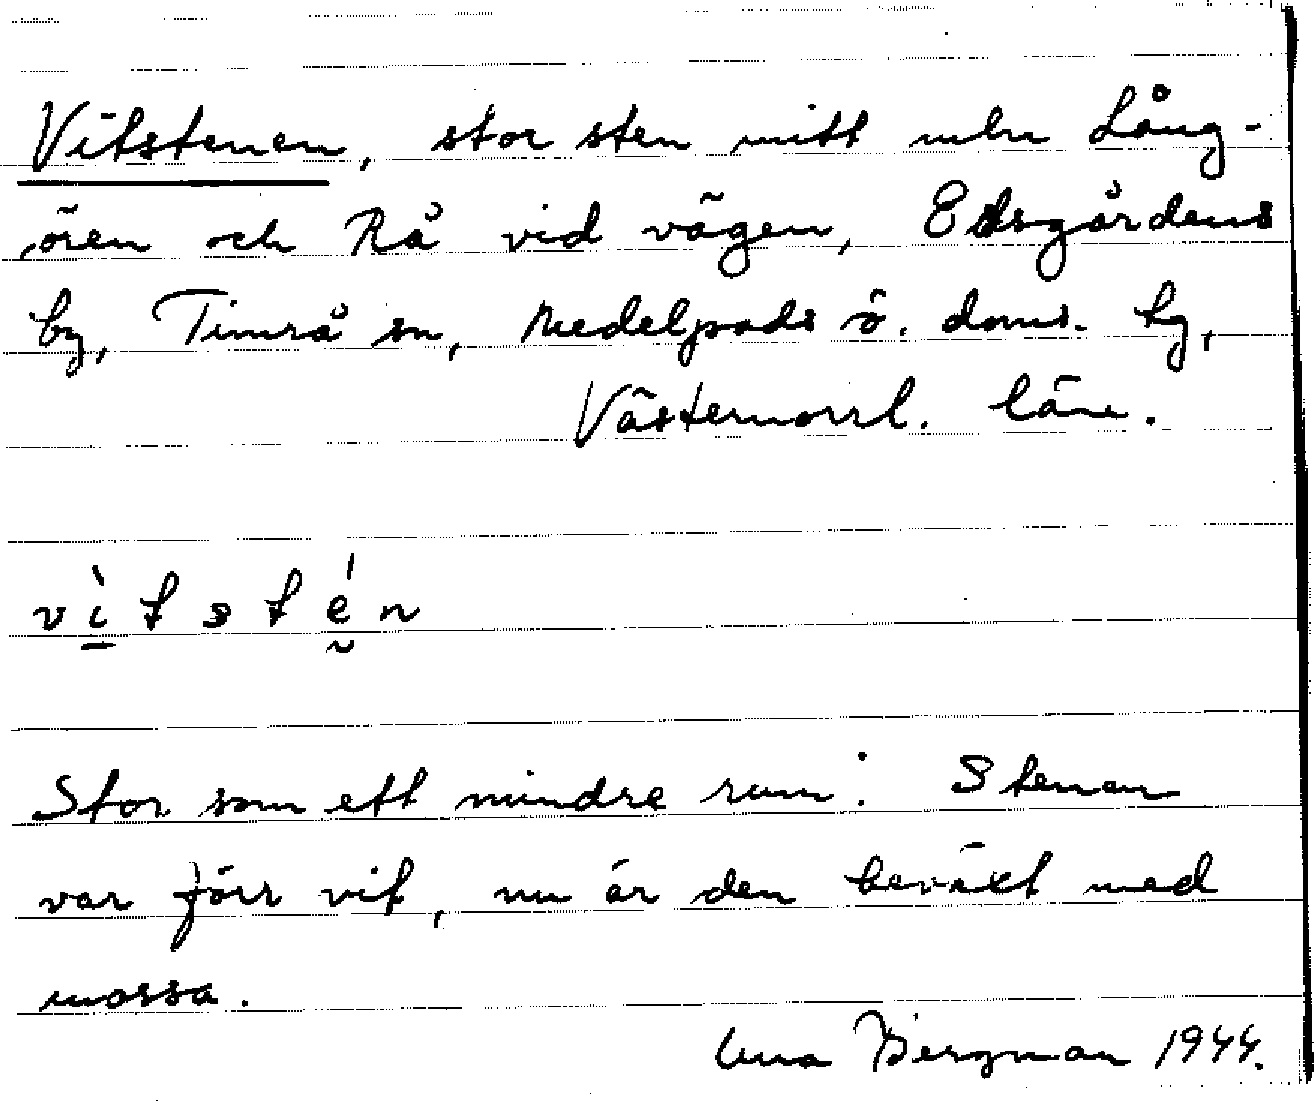 Vitstenen, stor sten mitt mln Lång-
ören och Rå vid vägen, Edsgårdens
by, Timrå sn, Medelpads ö. doms. tg,
Västernorrl. län.
v ì t s t é n
Stor som ett mindre rum. Stenen
var förr vit, nu är den beväxt med
mossa.
Bergman 1944.